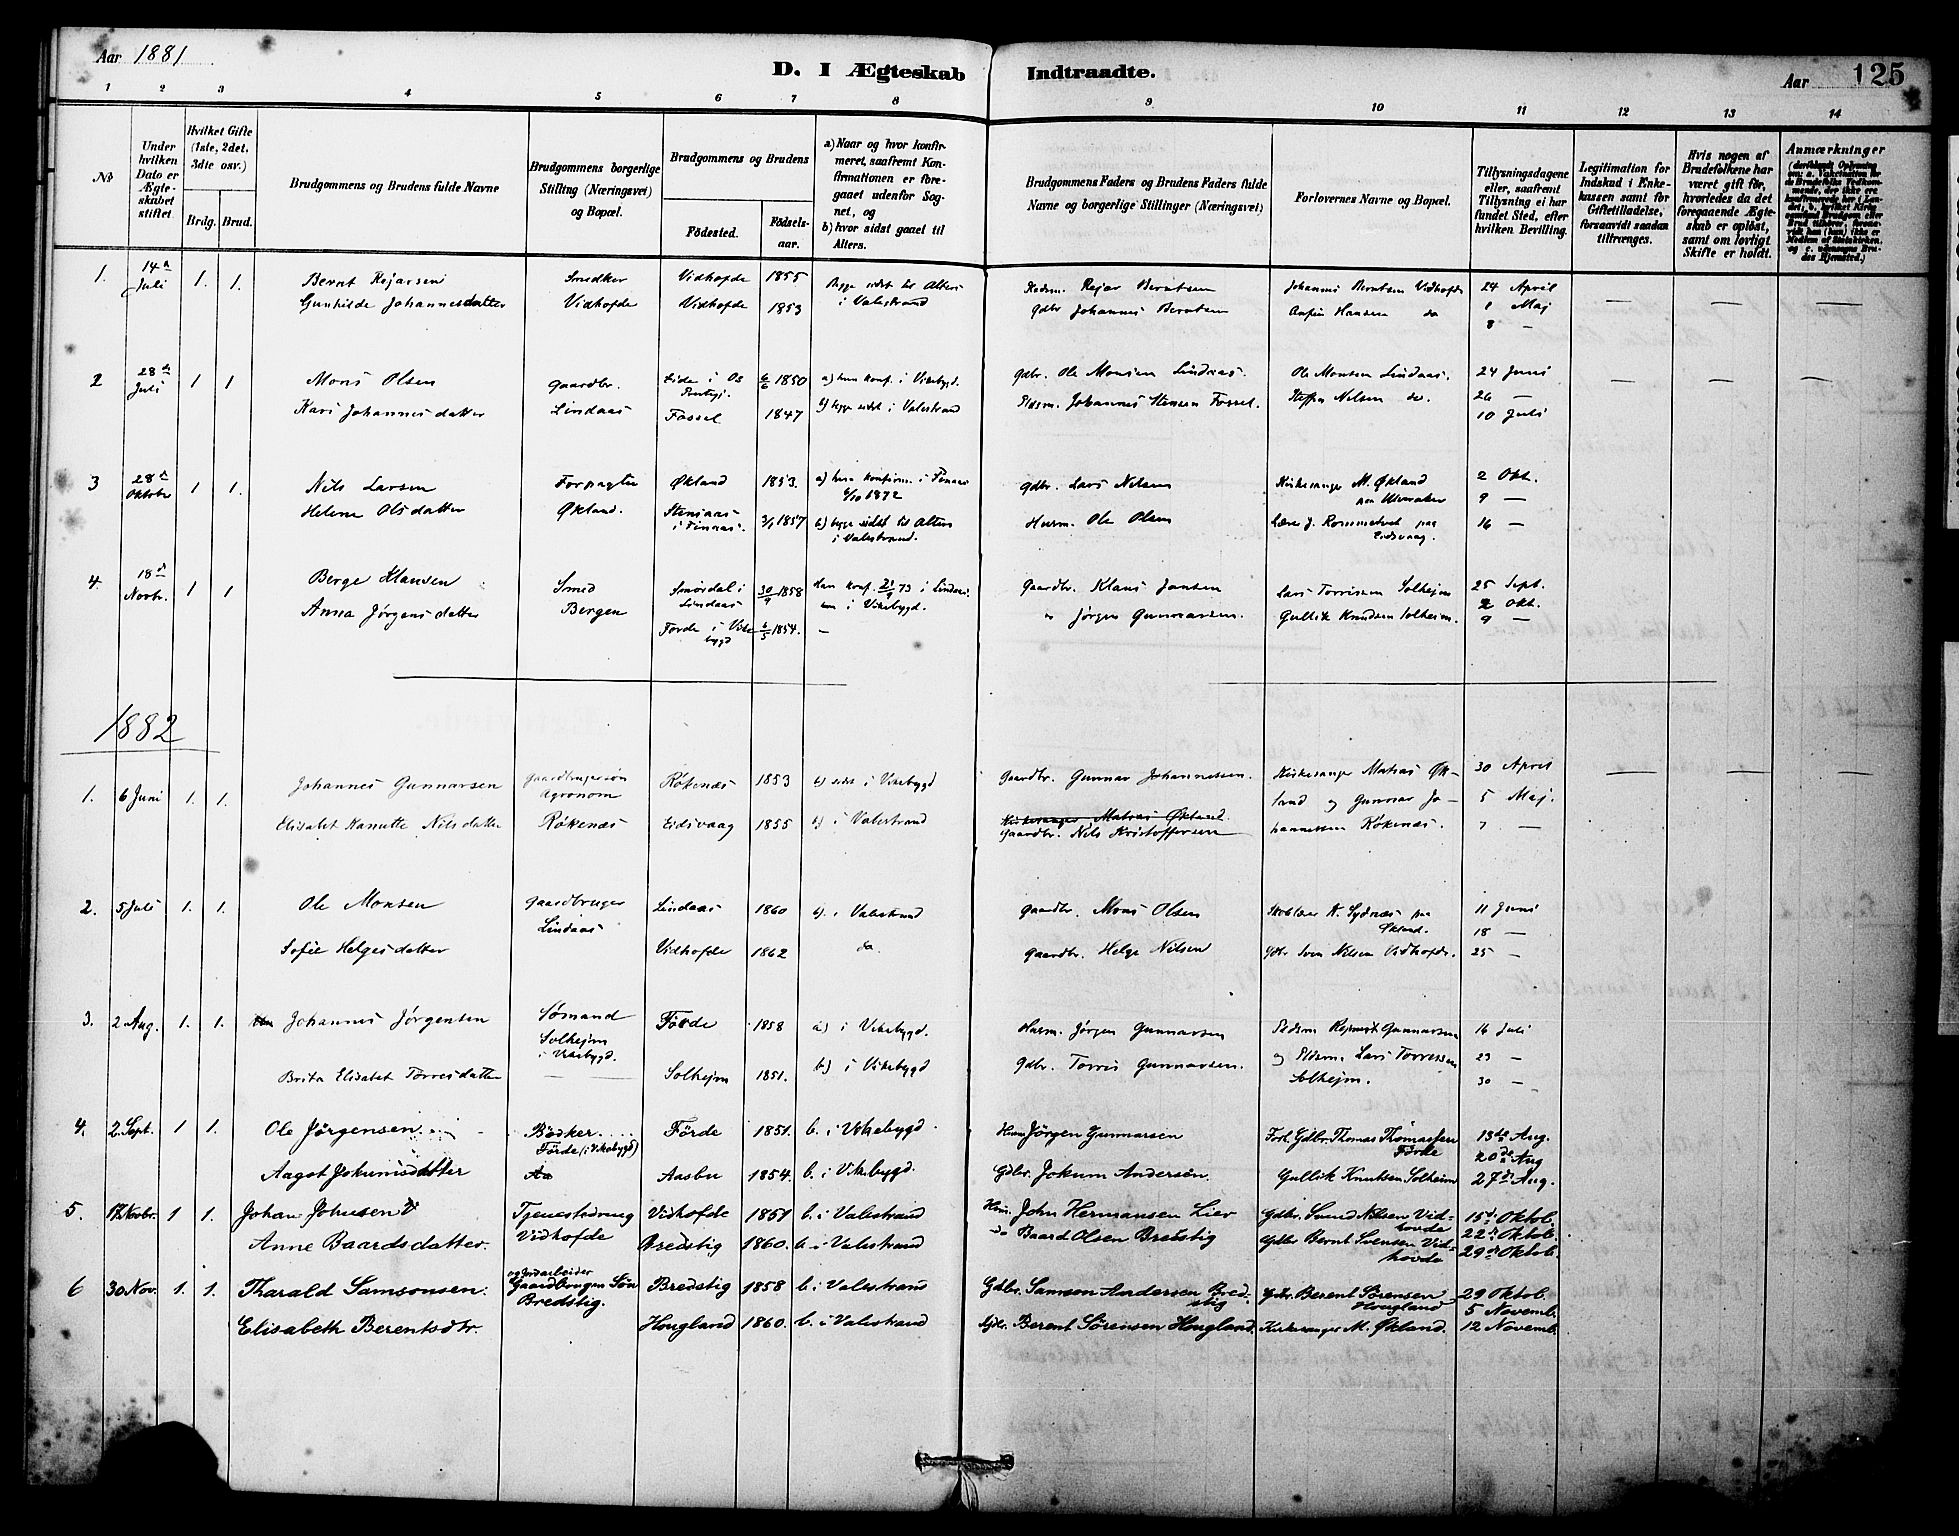 Aar 1881
D. I Ægteskab Indtraadte.
Aar 125
1 2 3 4 5 6 7 8 9 10 11 12 13 14
No
Under hvilken Dato er Ægteskabet stiftet.
Hvilket Gifte (1ste, 2det, 3die osv.)
Brdg. Brud.
Brudgommens og Brudens fulde Navne
Brudgommens borgerlige Stilling (Næringsvei) og Bopæl.
Brudgommens og Brudens
Fødested. Fødselsaar.
a) Naar og hvor konfirmeret, saafremt Konfirmationen er foregaaet udenfor Sognet, og
b) hvor sidst gaaet til Alters.
Brudgommens Faders og Brudens Faders fulde Navne og borgerlige Stillinger (Næringsvei)
Forlovernes Navne og Bopæl.
Tillysningsdagene eller, saafremt Tillysning ei har fundet Sted, efter hvilken Bevilling.
Legitimation for Indskud i Enkekassen samt for Giftetilladelse, forsaavidt saadan tiltrænges.
Hvis nogen af Brudefolkene har været gift før, hvorledes da det foregaaende Ægteskab er opløst, samt om lovligt Skifte er holdt.
Anmærkninger
1. 14de Juli 1. 1. Bernt Rejarsen Smedker Vidhofde 1855 Begge sidst til Alters Rejar Berntsen Johannes Berntsen Vidhofde 24 April
Gunhilde Johannesdatter Vidhofde Vidhofde 1853 i Valestrand Gdbr Johannes Berntsen Hansen do 1 Maj
8 —
2 28de Juli 1 1 Mons Olsen Gaardbr. Eide i Os 6/6 1850 a) hun konf. i Vikebygd. Gdbr. Ole Monsen Lindaas. Ole Monsen Lindaas. 24 Juni
Kari Johannesdatter Lindaas Fossel 1847 b) begge sidst i Valestrand Johannes Stensen Fossel. Steffen Nilsen do. 26 —
10 Juli
3 28de Oktober 1 1. Nils Larsen Forpagter Økland 1853. a) hun konfirm. i Finaas Gdbr. Lars Nilsen Kirkesanger M. Økland 2 Okt.
6/10 1872 9 —
Helene Olsdatter Økland. Stensaas i Finaas. 3/1 1857 b) begge sidst til Alters i Valestrand. Husm. Ole Olsen Lærer J. Rommetvet paa Eidsvaag. 16 —
4. 18de Novbr. 1 1 Berge Klausen Smed Smørdal i Lindaas 30/9 1858 Han konf. 21/9 73 i Lindaas. Gaardbr. Klaus Jansen Lars Torrissen Solhejm 25 Sept.
Anna Jørgensdatter Bergen hun i Vikebygd. " Jørgen Gunnarsen. Gullik Knudsen Solheim. 2 Okt.
Førde i Vikebygd 6/5 1854. — 9 —
1882
1. 6 Juni 1. 1. Johannes Gunnarsen Gaardbrugersøn Agronom Røkenæs 1853 b) sidst i Vikebygd Gaardbr. Gunnar Johannessen. Kirkesanger Matias Øk- 30 April
land og Gunnar Jo- 5 Maj.
Elisabet Kanutte Nilsdatter Røkenæs Eidsvaag 1855 b) i Valestrand Kirkesanger Matias Økland. hannessen Røkenæs. 7 —
Gaardbr. Nils Kristoffersen
2. 5 Juli 1. 1. Ole Monsen Gaardbruger Lindaas 1860 b). i Valestrand Gaardbr. Mons Olsen Skolelærer K. Sydnæs paa Økland. 11 Juni
Lindaas 18 —
Sofie Helgesdatter Vidhofde 1862 do. Gaardbr. Helge Nilsen Gdbr Sven Nilsen Vidhofde. 25 —
3. 2 Aug. 1. 1. Johannes Jørgensen Sømand Førde 1858 a) i Vikebygd. Husm. Jørgen Gunnarsen Gunnarsen 16 Juli
Solhejm i Vikebygd. og Lars Torressen 23 —
Brita Elisabet Torresdatter Solhejm 1851. b) i Vikebygd Gdbr. Torris Gunnarsen. Solhejm. 30 —
4. 2 Sept. 1 1. Ole Jørgensen. Bødker. Førde 1851. b. i Vikebygd. Husm Jørgen Gunnarsen Forl. Gdbr. Thomas Thomassen Førde 13de Aug.
Førde (i Vikebygd) 20de Aug
Aagot Jokumsdatter Aa Aasbu 1854. b. i Vikebygd. Gdbr. Jokum Andersen. Gullik Knutsen Solheim 27de Aug.
5. 17 Novbr. 1 1. Johan Johnsen Tjenestedreng Vidhofde 1857 b. i Valestrand Hsm. John Hermansen Lier Gdbr. Svend Nilsen Vidhovde 15de Oktob.
Anne Baardsdatter. Vidhofde Bredstig 1860. b. i Valestrand do Baard Olsen Bredstig Gdbr Bernt Svensen Vidhovde 22de Oktob.
29de Oktob.
6 30 Nov. 1. 1. Tharald Samsonsen. og Jordarbeider Gaardbrugers Søn Bredstig 1858 b. i Valestrand Gdbr. Samson Andersen Bredstig Gdbr. Berent Sørensen Hougland 29 Oktob.
Bredstig. 5 Novemb.
Elisabeth Berentsdtr. Hougland 1860. b. i Valestrand Gdbr. Berent Sørensen Hougland. Kirkesanger M. Økland. 12 Novemb.